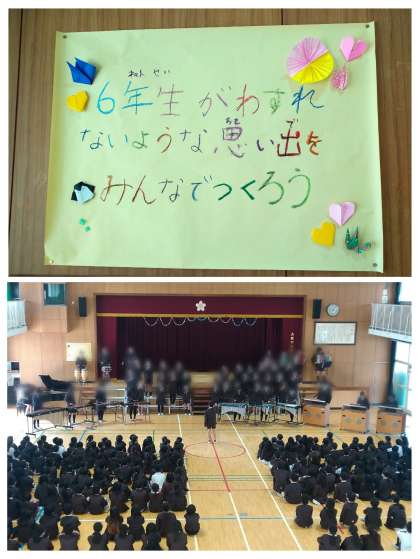 6年生がわすれ
ないような思い出を
みんなでつくろう